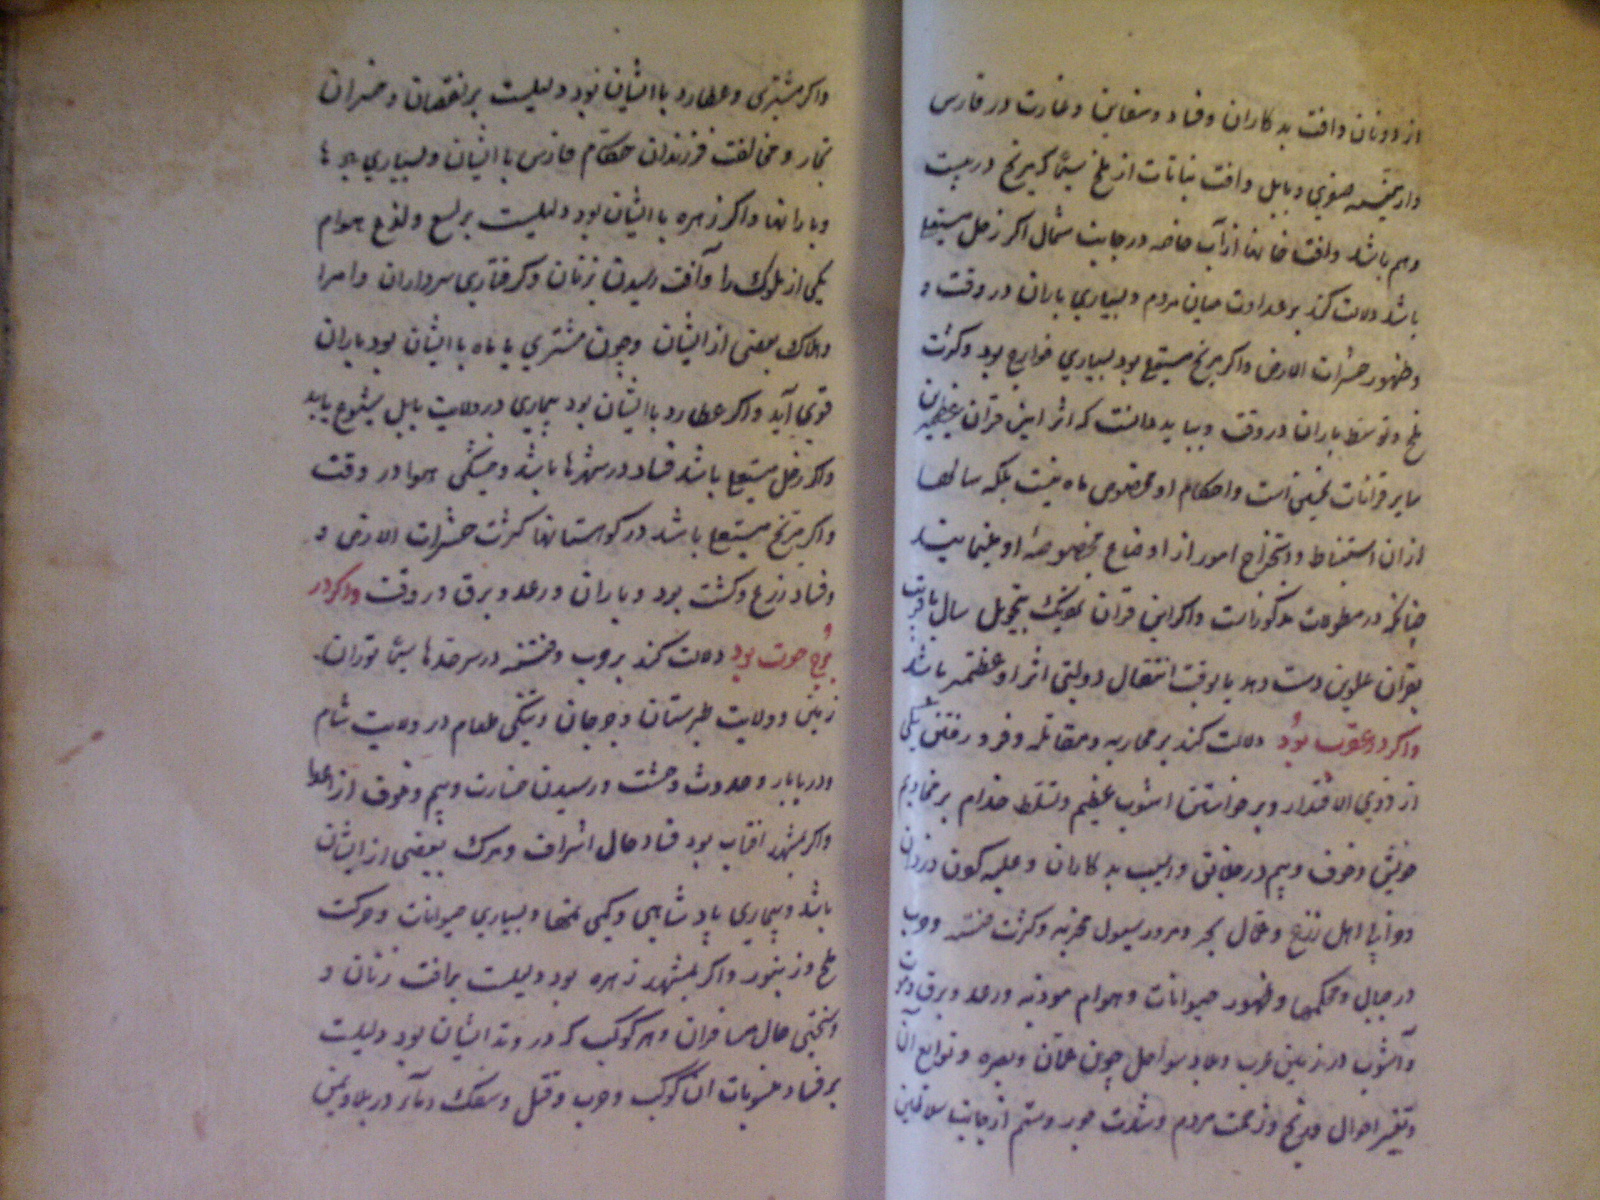 از دونان وافت بدکاران وفساد ومفاین وغارت در فارس
وارمینیه صغری وبابل وافت نباتات از ملخ سیما که مریخ در بیت
وهم باشد وافت خانها از آب خاصه در جانب شمال اکر زحل مستعلی
باشد دلالت کند بر عداوت میان مردم وبسیاری باران در وقت و
وظهور حشرات الارض واکر مریخ مستعلی بود بسیاری خوارج بود وکثرت
ملخ وتوسط باران در وقت وبباید دانست که اثر این قران عظیم‌ترین
سایر قرانات نحسین است واحکام او مخصوص ماه نیست بلکه سالها
ازان استنباط واستخراج امور از اوضاع مخصوصهٔ او مینمایند
چنانکه در مطولات مذکور است واکر این قران نزدیک بتحویل سال یا قریب
بقران علویین دست دهد یا بوقت انتقال دولتی اثر او عظیمتر باشد
واکر در عقرب بود دلالت کند بر محاربه ومقاتله وفرو رفتن یکی
از ذوی الاقتدار وبرخواستن اشوب عظیم وتسلط خدام بر مخادیم
خویش وخوف وبیم در خلایق واسیب بدکاران وغلبه کون دزدان
اهل زرع وعمال بحر ومرور سیول مخربه وکثرت فتنه وحرب
در جبال ومحکمها وظهور حیوانات وهوام موذیه ورعد وبرق وموت
وآشوب در زمین عرب وبلاد سواحل چون عمان وبصره وتوابع آن
وتغیر احوال ورنج وزحمت مردم وشدت جور وستم از جانب سلاطین
واکر مشتری وعطارد با ایشان بود دلیلست بر نقصان وخسران
تجار ومخالفت فرزندان حکام فارس با ایشان وبسیاری
وبارانها واکر زهره با ایشان بود دلیلست بر لسع ولذع هوام
یکی از ملوک را وآفت رسیدن بزنان وکرفتاری سرداران وامرا
وهلاک بعضی از ایشان وچون مشتری یا ماه با ایشان بود باران
قوی آید واکر عطارد با ایشان بود بیماری در ولایت بابل شیوع یابد
واکر زحل مستعلی باشد فساد در شهرها باشد وخشکی هوا در وقت
واکر مریخ مستعلی باشد در کوهستانها کثرت حشرات الارض و
وفساد زرع وکشت بود وباران ورعد وبرق در وقت واکر در
برج حوت بود دلالت کند بر حرب وفتنه در سرحدها سیما توران
زمین وولایت طبرستان وجرجان وتنکی طعام در ولایت شام
ودریابار وحدوث وحشت ورسیدن خسارت وبیم وخوف از اعدا
واکر بمشهد افتاب بود فساد حال اشراف ومرک بعضی از ایشان
باشد وبیماری پادشاهی وکمی نمها وبسیاری حیوانات وحرکت
ملخ وزنبور واکر بمشهد زهره بود دلیلست بر افت زنان و
وسختی حال مسافران وهر کوکب که در وتد ایشان بود دلیلست
بر فساد منسوبات ان کوکب وحرب وقتل وسفک دماء در بلاد یمن